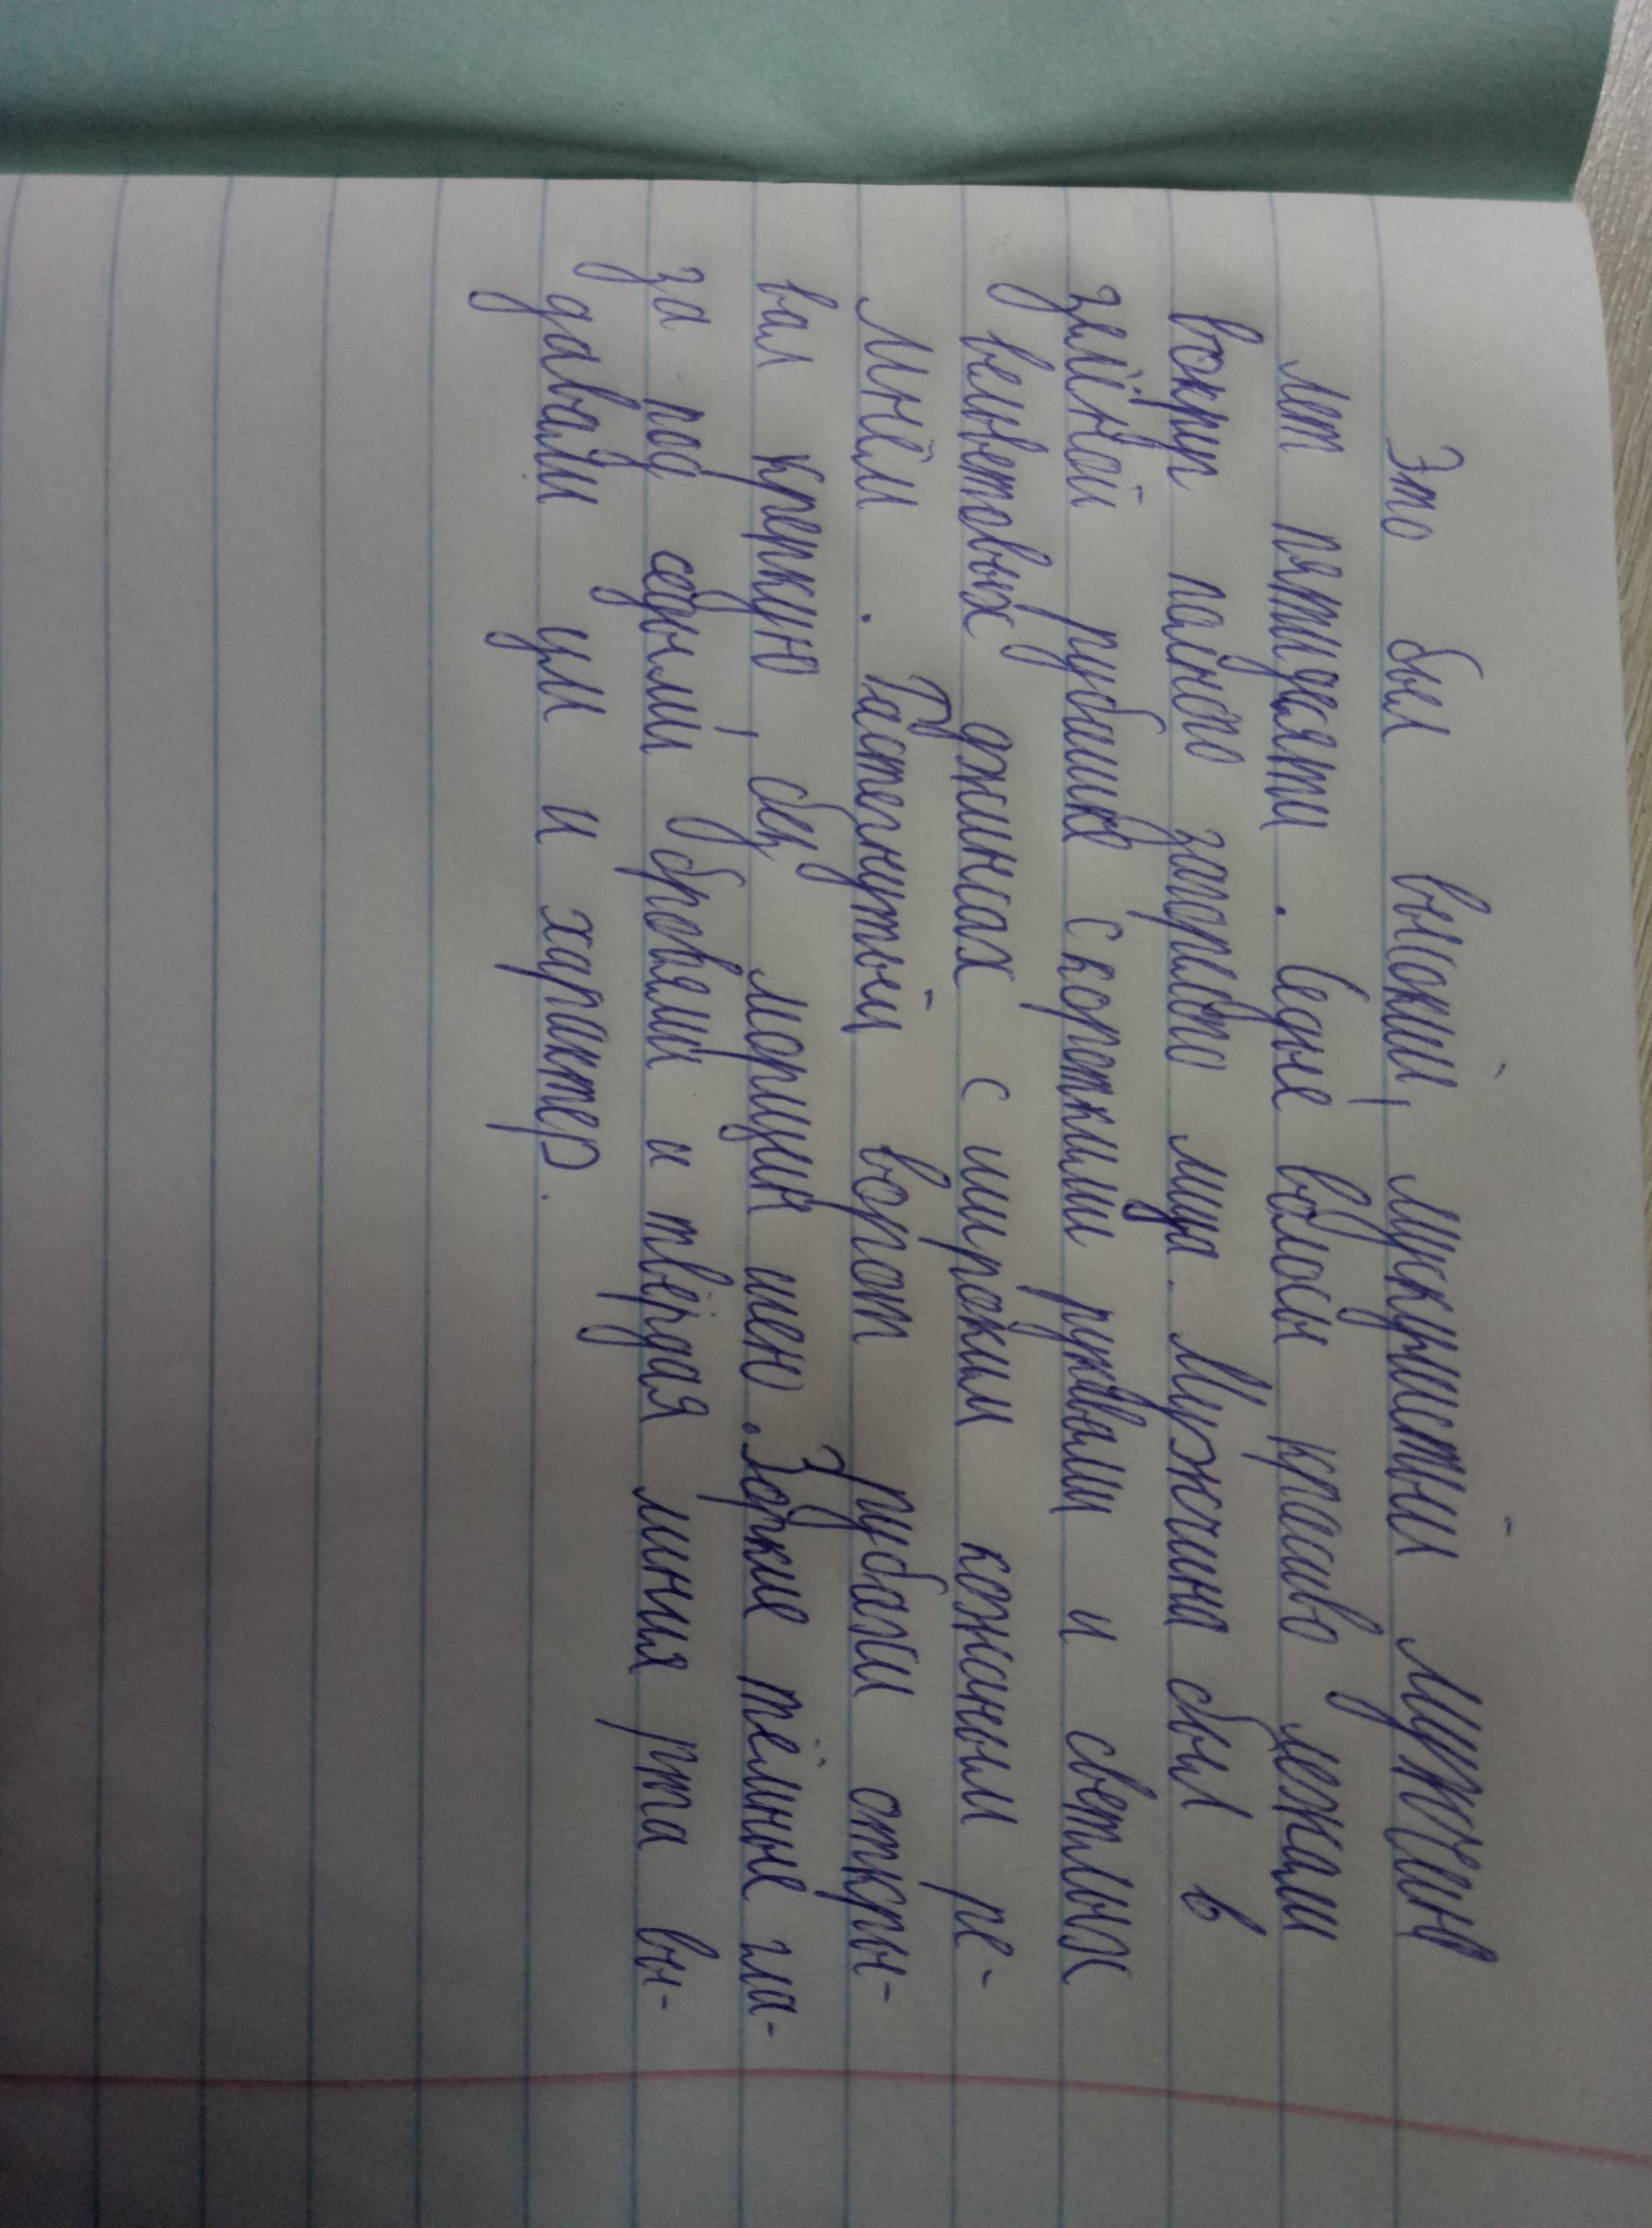 Это был высокий, мускулистый мужчина
лет пятидесяти. Седые волосы красиво лежали
вокруг полного загорелого лица. Мужчина был в
зелёной рубашке с короткими рукавами и светлых
вельветовых джинсах с широким кожаным ре-
мнём. Растегнутый ворот рубахи откры-
вал крепкую, без морщин шею. Зоркие тёмные гла-
за под седыми бровями и твёрдая линия рта вы-
давали ум и характер.